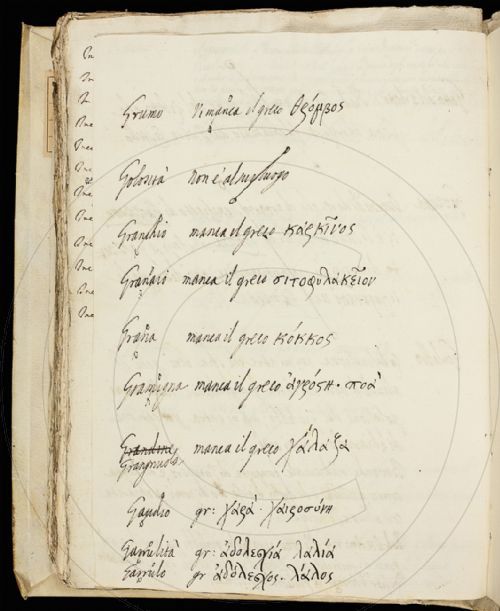 Grumo Vi manca il greco θρόμβος
Golosità non è al suo luogo
Granchio manca il greco κάρκῖνος
Granaio manca il greco σιτοφυλακεῖον
Grana manca il greco κόκκος
Gramigna manca il greco ἀγρόση. ποά
Grandine manca il greco χάλαζα
Gragnuola
Gaudio gr: χαρά. χαιροσύνη
Garrulità gr: ἀδολεσχιά λαλιά
Garrulo gr ἀδόλεσχος. λάλος